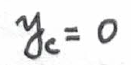 y_c = 0